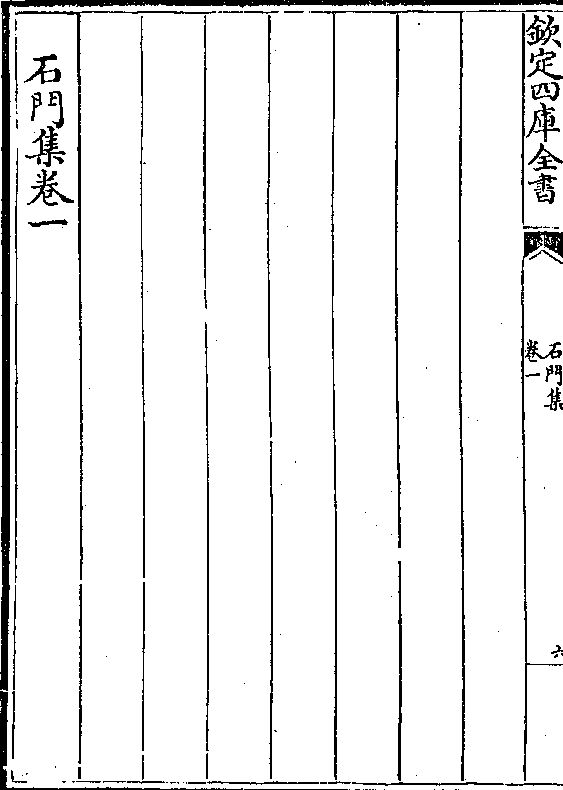 欽定四庫全書
石門集
卷一
六
石門集卷一